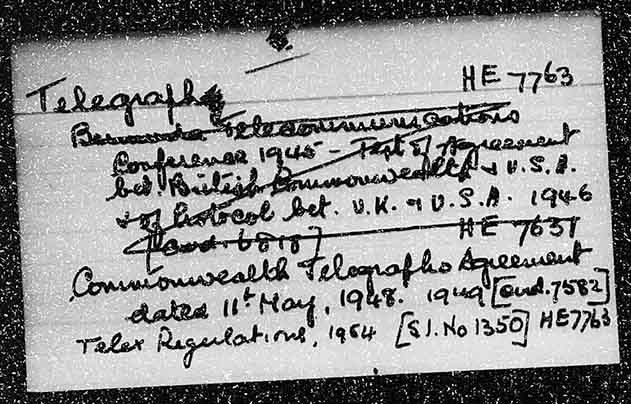 Telegraphs HE 7763
Bermuda Telecommunications
Conference 1945 - Text of Agreement
bet. British Commonwealth & U.S.A.
& of Protocol bet. U.K. & U.S.A. 1946
HE 7631
Commonwealth Telegraphs Agreement
dated 11th May, 1948. 1949 [Cmd. 7582]
Telex Regulations, 1954 [S.I. No 1350] HE7763